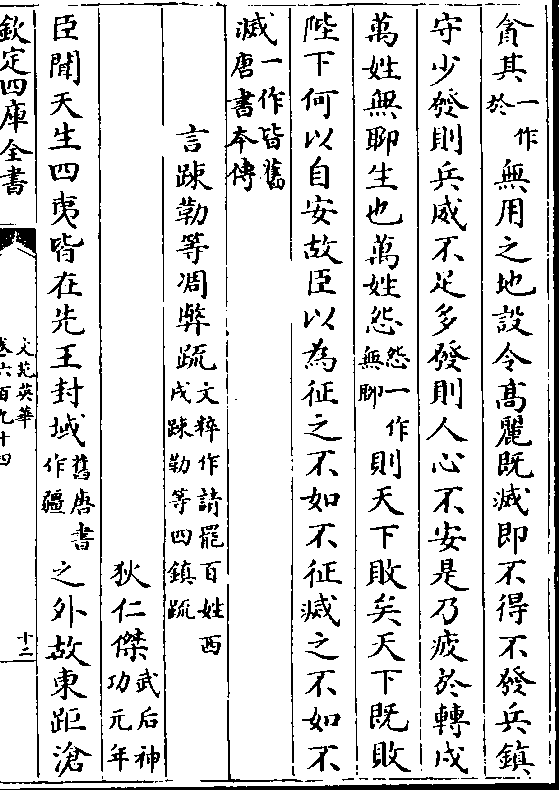 貪其一作於無用之地設令高麗既滅即不得不發兵鎮
守少發則兵威不足多發則人心不安是乃疲於轉戍
萬姓無聊生也萬姓怨怨一作無聊則天下敗矣天下既敗
陛下何以自安故臣以為征之不如不征滅之不如不
滅一作皆舊唐書本傳
言踈勒等凋弊疏文粹作請罷百姓西戍踈勒等四鎮疏
狄仁傑武后神功元年
臣聞天生四夷皆在先王封域舊唐書作疆之外故東距滄
欽定四庫全書
文苑英華
卷六百九十四
十二